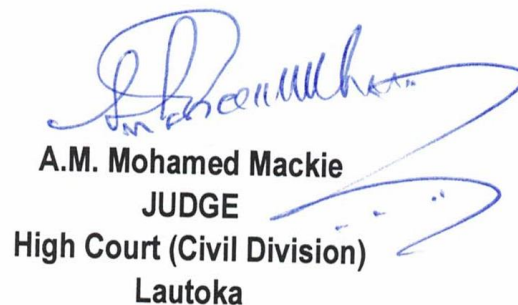 A.M. Mohamed Mackie
JUDGE
High Court (Civil Division)
Lautoka